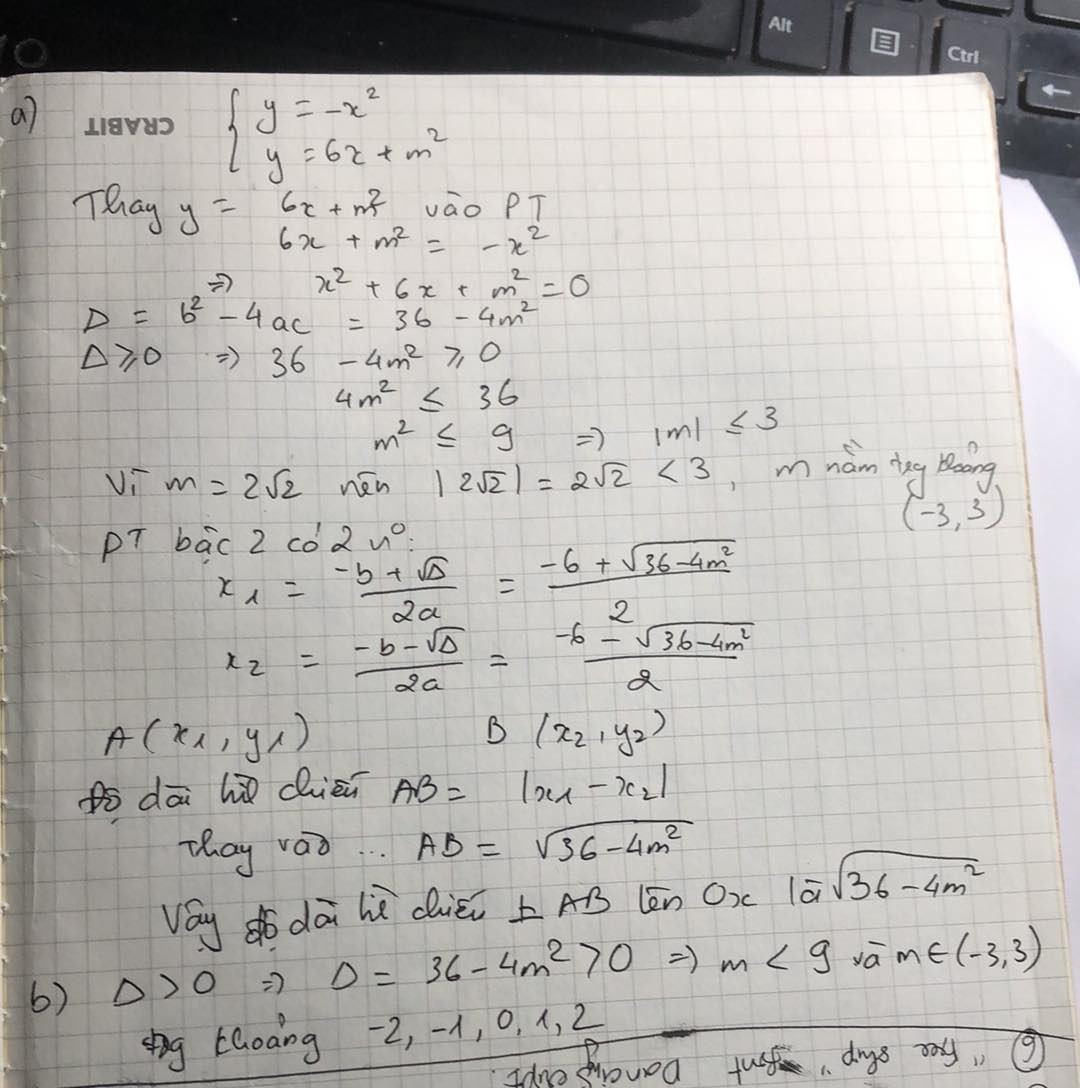 Alt
Ctrl
a) CRABIT { y = -x²
y = 6x + m²
Thay y = 6x + m² vào PT
6x + m² = -x²
=> x² + 6x + m² = 0
Δ = b² - 4ac = 36 - 4m²
Δ ≥ 0 => 36 - 4m² ≥ 0
4m² ≤ 36
m² ≤ 9 => |m| ≤ 3
Vì m = 2√2 nên |2√2| = 2√2 < 3, m nằm trg khoảng
(-3, 3)
PT bậc 2 có 2 n⁰:
x₁ = (-b + √Δ)/2a = (-6 + √(36-4m²))/2
x₂ = (-b - √Δ)/2a = (-6 - √(36-4m²))/2
A (x₁, y₁) B (x₂, y₂)
Độ dài hình chiếu AB = |x₁ - x₂|
Thay vào ... AB = √(36-4m²)
Vậy độ dài hình chiếu ⊥ AB lên Ox là √(36-4m²)
b) Δ > 0 => Δ = 36 - 4m² > 0 => m < 9 và m ∈ (-3, 3)
trg khoảng -2, -1, 0, 1, 2
6 "free ship" font Dancing